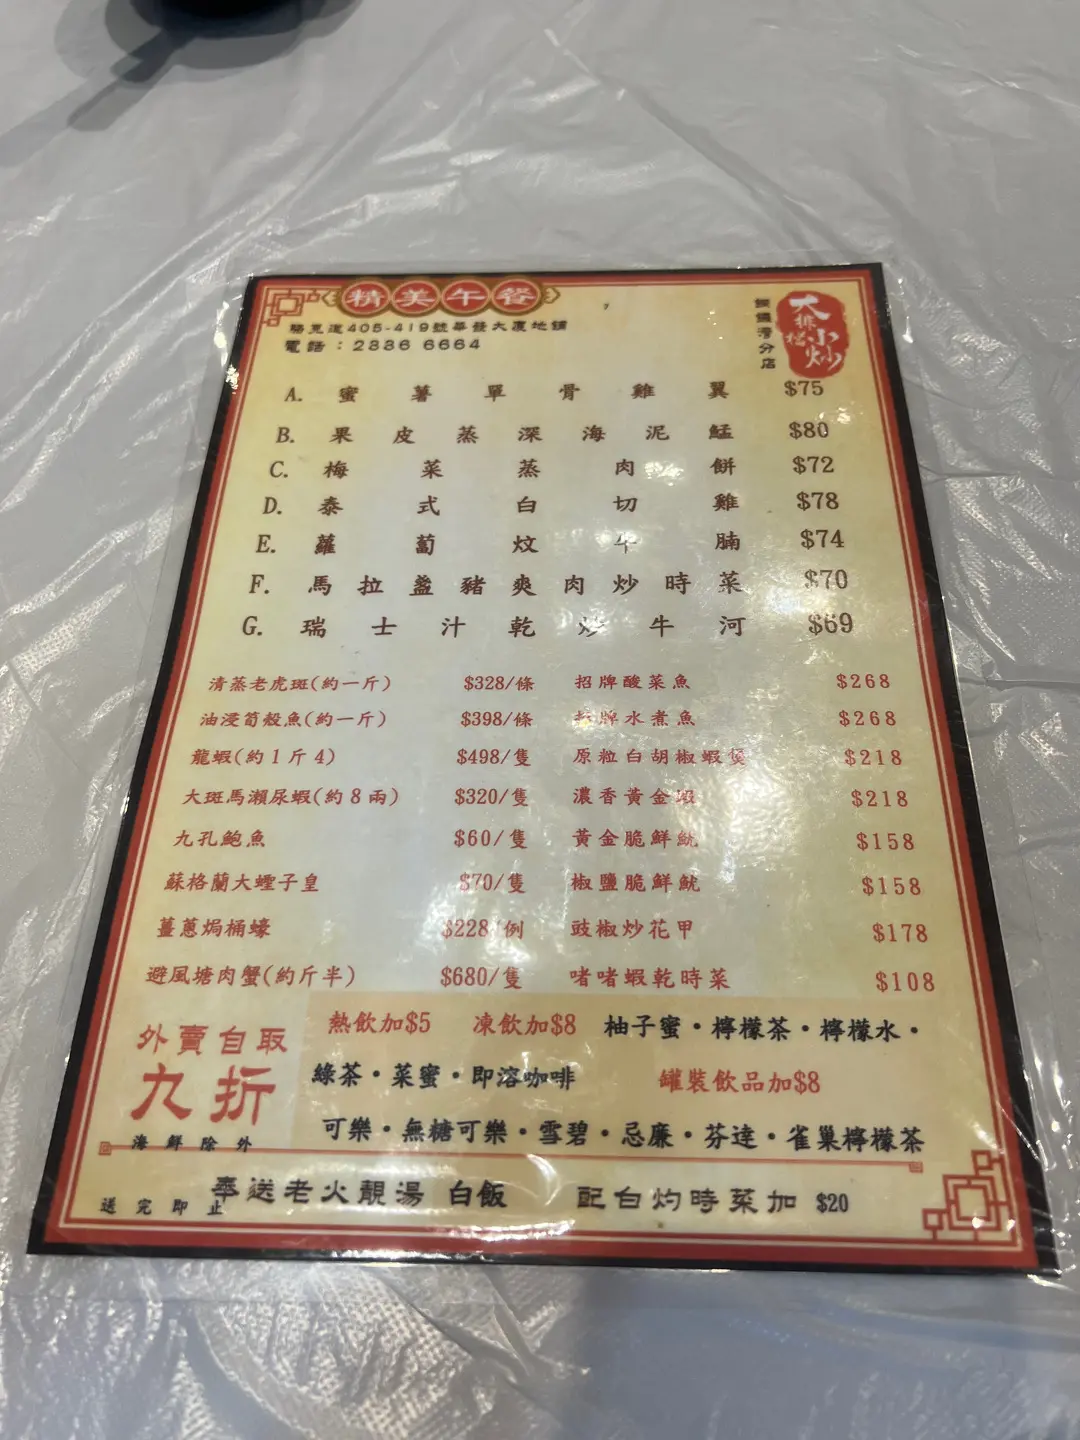 精美午餐
駱克道405-419號華發大廈地舖
電話：2336 6664
銅鑼灣分店
大排檔小炒
A. 蜜薯單骨雞翼 $75
B. 果皮蒸深海泥鯭 $80
C. 梅菜蒸肉餅 $72
D. 泰式白切雞 $78
E. 蘿蔔炆牛腩 $74
F. 馬拉盞豬爽肉炒時菜 $70
G. 瑞士汁乾炒牛河 $69
清蒸老虎斑(約一斤) $328/條 招牌酸菜魚 $268
油浸筍殼魚(約一斤) $398/條 招牌水煮魚 $268
龍蝦(約1斤4) $498/隻 原粒白胡椒蝦煲 $218
大斑馬瀨尿蝦(約8兩) $320/隻 濃香黃金蝦 $218
九孔鮑魚 $60/隻 黃金脆鮮魷 $158
蘇格蘭大蟶子皇 $70/隻 椒鹽脆鮮魷 $158
薑蔥焗桶蠔 $228/例 豉椒炒花甲 $178
避風塘肉蟹(約斤半) $680/隻 啫啫蝦乾時菜 $108
外賣自取
九折
海鮮除外
熱飲加$5 凍飲加$8 柚子蜜・檸檬茶・檸檬水・
綠茶・菜蜜・即溶咖啡 罐裝飲品加$8
可樂・無糖可樂・雪碧・忌廉・芬達・雀巢檸檬茶
奉送老火靚湯 白飯 配白灼時菜加 $20
送完即止